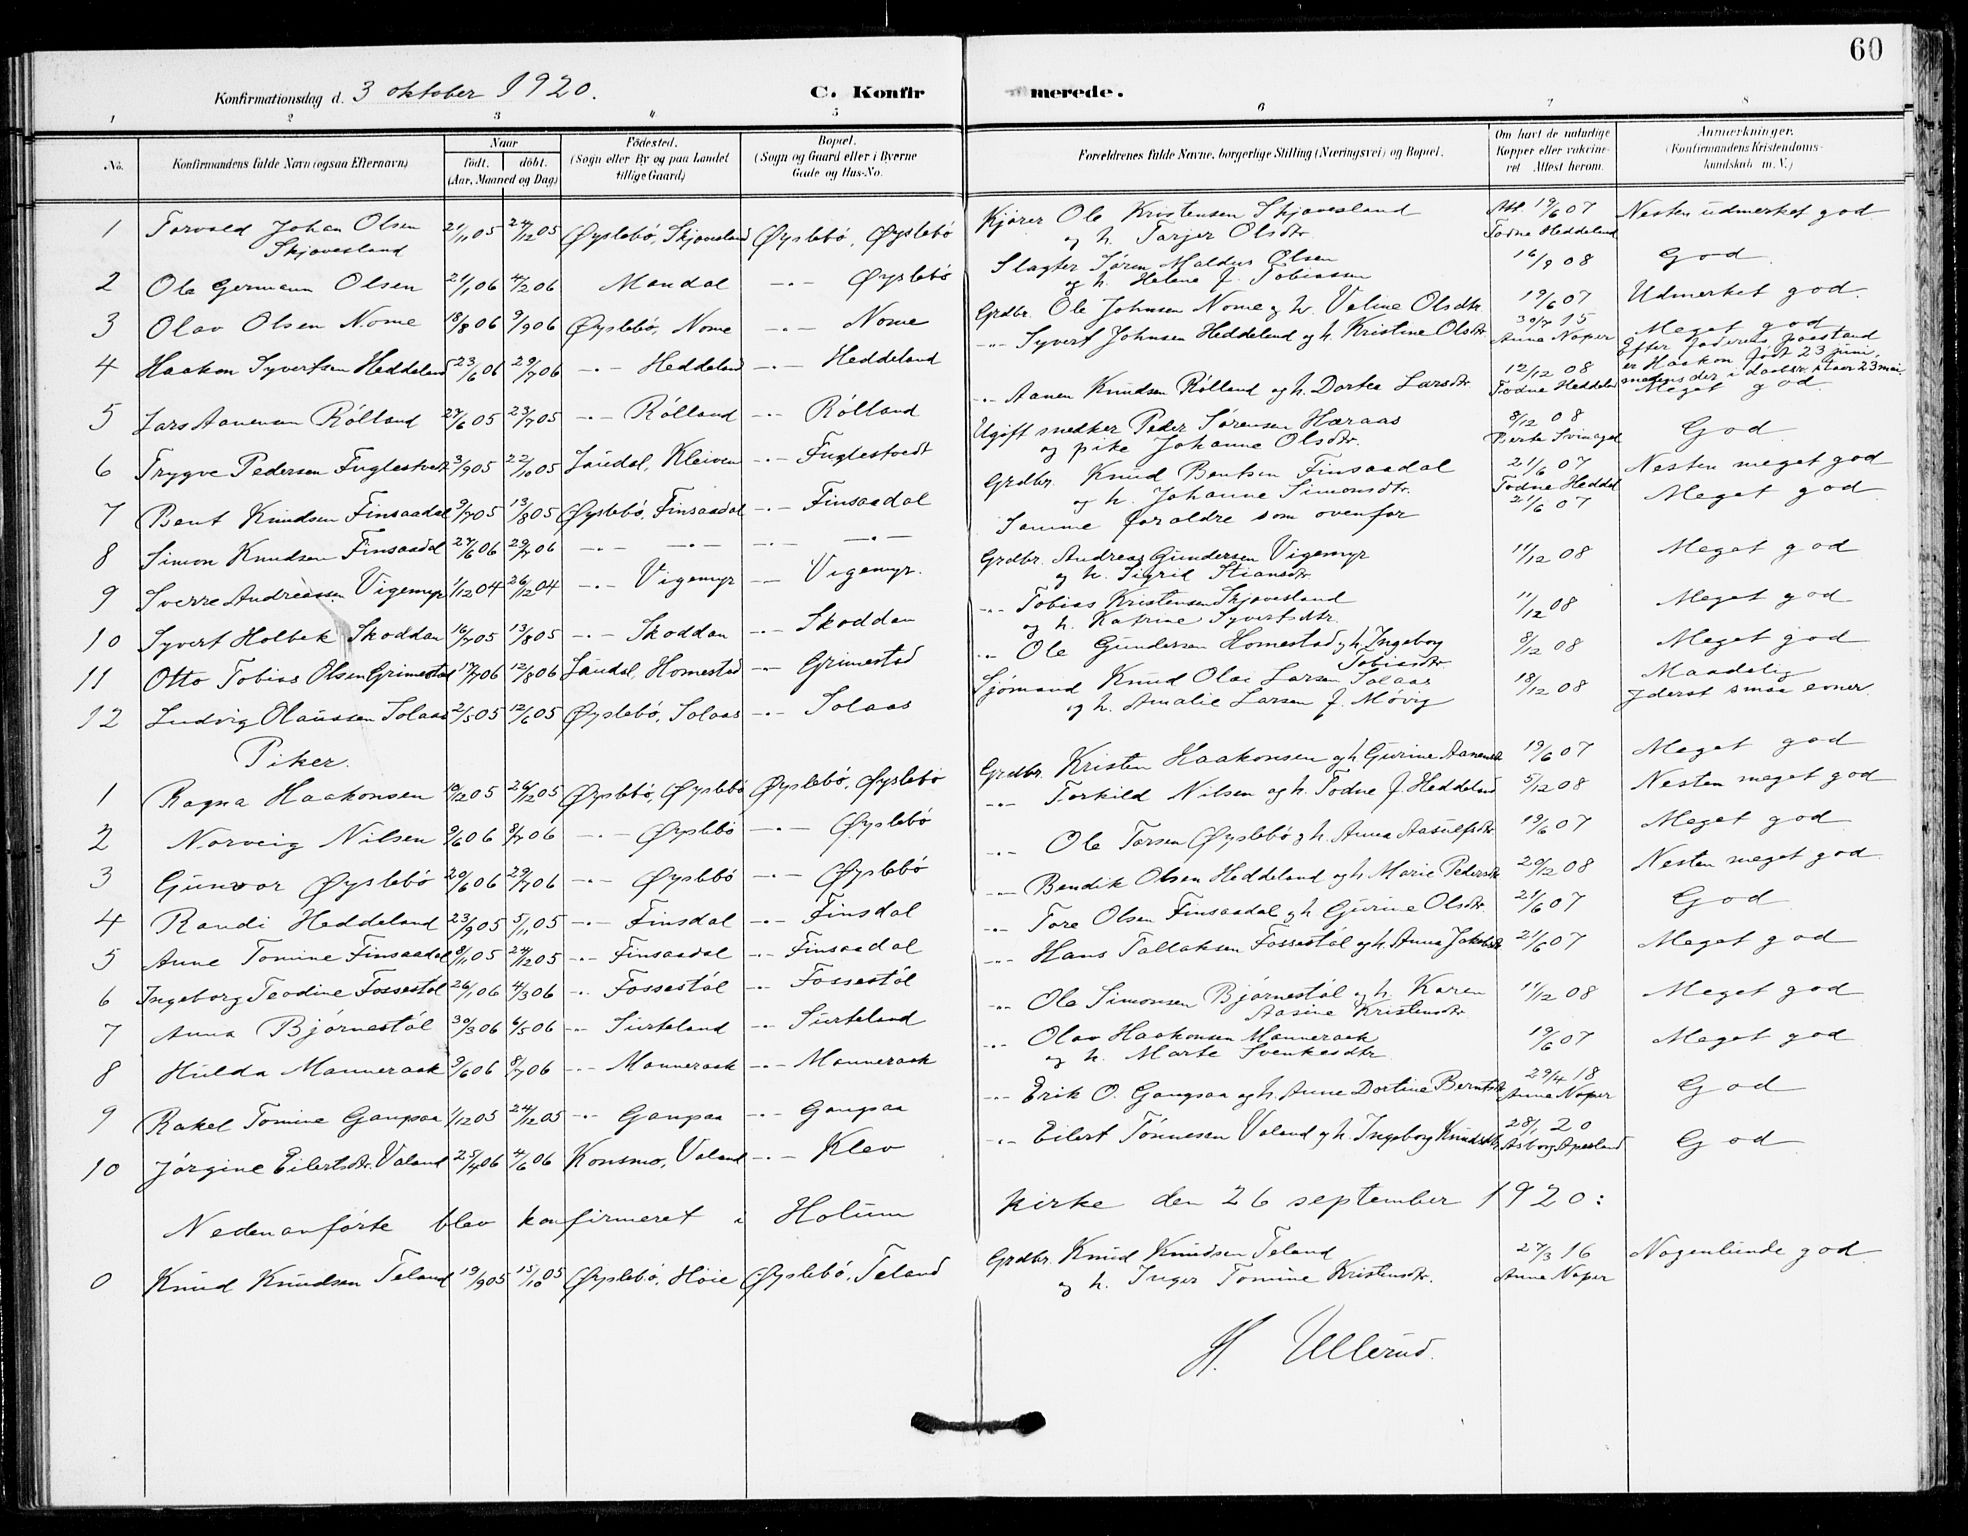 60
Konfirmationsdag d. 3 oktober 1920.
C. Konfirmerede.
1 2 3 4 5 6 7 8
No. Konfirmandens fulde Navn (ogsaa Efternavn) Naar født. døbt. (Aar, Maaned og Dag) Fødested. (Sogn eller By og paa Landet tillige Gaard) Bopæl. (Sogn og Gaard eller i Byerne Gade og Hus-No. Forældrenes fulde Navne, borgerlige Stilling (Næringsvei) og Bopæl. Om havt de naturlige Kopper eller vaksineret. Attest herom. Anmerkninger. (Konfirmandens Kristendomskundskab m. V.)
1 Torvald Johan Olsen Skjævesland 21/11 05 24/12 05 Øyslebø, Skjævesland Øyslebø, Øyslebø Kjører Ole Kristensen Skjævesland og h. Tarjer Olsdtr. Att. 19/6 07 Todne Heddeland Nesten udmerket god
2 Ole Germann Olsen 21/1 06 4/2 06 Mandal -"- Øyslebø Slagter Søren Maldus Olsen og h. Helene f. Tobiassen 16/9 08 God
3 Olav Olsen Nome 18/8 06 9/9 06 Øyslebø, Nome -"- Nome Grdbr. Ole Johnsen Nome og h. Veline Olsdtr. 19/6 07 Udmerket god.
4 Haakon Syvertsen Heddeland 23/6 06 29/7 06 -"- Heddeland -"- Heddeland -"- Syvert Johnsen Heddeland og h. Kristine Olsdtr 30/7 15 Anna Noper Meget god Efter faderens paastand er Haakon født 23 juni, medens der i daabsr. staar 23 mai
5 Lars Aanensen Rølland 27/6 05 23/7 05 -"- Rølland -"- Rølland -"- Aanen Knudsen Rølland og h. Dorthea Larsdtr 12/12 08 Todne Heddeland Meget god
6 Trygve Pedersen Fuglestvedt 3/9 05 22/10 05 Laudal, Kleiven -"- Fuglestvedt Ugift snedker Peder Sørensen Høraas og pike Johanne Olsdtr. 8/12 08 Berte Svinagel God
7 Bent Knudsen Finsaadal 9/7 05 13/8 05 Øyslebø, Finsaadal -"- Finsaadal Grdbr. Knud Bentsen Finsaadal og h. Johanne Simonsdtr. 21/6 07 Todne Heddel Nesten meget god
8 Simon Knudsen Finsaadal 27/6 06 29/7 06 -"- -"- -"- -"- Samme foraldre som ovenfor 21/6 07 Meget god
9 Sverre Andreassen Vigemyr 1/12 04 26/12 04 -"- Vigemyr -"- Vigemyr. Grdbr. Andreas Gundersen Vigemyr og h. Sigrid Stiansdtr. 11/12 08 Meget god
10 Syvert Holbek Skoddan 16/7 05 13/8 05 -"- Skoddan -"- Skoddan -"- Tobias Kristensen Skjævesland og h. Katrine Syvertsdtr. 11/12 08 Meget god
11 Otto Tobias Olsen Grimestad 17/7 06 12/8 06 Laudal, Homestad -"- Grimestad -"- Ole Gundersen Homestad og h. Ingeborg Tobiasdtr. 8/12 08 Meget god
12 Ludvig Olaussen Solaas 2/5 05 12/6 05 Øyslebø, Solaas -"- Solaas Sjømand Knud Olai Larsen Solaas og h. Amalie Larsen f. Møvig 18/12 08 Maadelig Yderst smaa evner.
Piker.
1 Ragna Haakonsen 10/12 05 26/12 05 Øyslebø, Øyslebø Øyslebø, Øyslebø Grdbr. Kristen Haakonsen og h. Gurine Aanensdtr 19/6 07 Meget god
2 Norveig Nilsen 9/6 06 8/7 06 -"- Øyslebø -"- Øyslebø -"- Torkild Nilsen og h. Todne f. Heddeland 5/12 08 Nesten meget god
3 Gunvor Øyslebø 20/6 06 29/7 06 -"- Øyslebø -"- Øyslebø -"- Ole Torsen Øyslebø og h. Anna Aasulfsdtr 19/6 07 Meget god
4 Randi Heddeland 23/9 05 5/11 05 -"- Finsdal -"- Finsdal -"- Bendik Olsen Heddeland og h. Marie Pedersdtr 29/12 08 Nesten meget god
5 Anne Tomine Finsaadal 8/11 05 24/12 05 -"- Finsaadal -"- Finsaadal -"- Tore Olsen Finsaadal og h. Gurine Olsdtr. 21/6 07 God
6 Ingeborg Teodine Fossestøl 26/1 06 4/3 06 -"- Fossestøl -"- Fossestøl -"- Hans Tallaksen Fossestøl og h. Anna Jakobsdtr 21/6 07 Meget god
7 Anna Bjørnestøl 30/3 06 6/5 06 -"- Surteland -"- Surteland -"- Ole Simonsen Bjørnestøl og h. Karen Aasine Kristensdtr 11/12 08 Meget god
8 Hulda Manneraak 9/6 06 8/7 06 -"- Manneraak -"- Manneraak -"- Olav Haakonsen Manneraak og h. Marte Svenkesdtr. 19/6 07 Meget god
9 Rakel Tomine Gangsaa 1/12 05 24/12 05 -"- Gangsaa -"- Gangsaa -"- Erik O. Gangsaa og h. Anne Dortine Berntsdtr. 29/4 18 Anna Noper God
10 Jørgine Eilertsdtr. Valand 25/4 06 4/6 06 Konsmo, Valand -"- Klev -"- Eilert Tønnesen Valand og h. Ingeborg Knudsdtr. 28/1 20 Asborg Apesland God
Nedenanførte blev konfirmeret i Holum kirke den 26 september 1920:
0 Knud Knudsen Teland 19/9 05 15/10 05 Øyslebø, Høie Øyslebø, Teland Grdbr. Knud Knudsen Teland og h. Inger Tomine Kristensdtr. 27/3 16 Anna Noper Nogenlunde god
H. Ullerud.